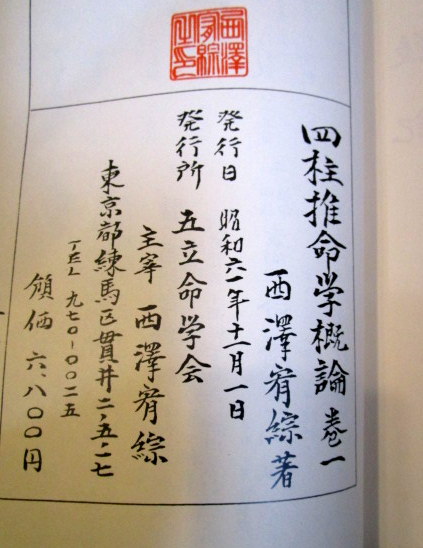 四柱推命学概論 巻一
西澤宥綜著
発行日 昭和六一年十二月一日
発行所 五立命学会
主宰 西澤宥綜
東京都練馬区貫井二、五、一七
TEL 九七〇-〇〇二五
頒価 六、八〇〇円
西澤宥綜之印